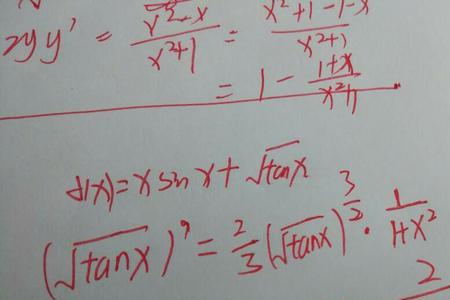 2yy' = \frac{x^2-x}{x^2+1} = \frac{x^2+1-1-x}{x^2+1}
= 1 - \frac{1+x}{x^2+1}
f(x) = x sin x + \sqrt{tan x}
(\sqrt{tan x})' = \frac{2}{3} (\sqrt{tan x})^{\frac{3}{2}} · \frac{1}{1+x^2}
2